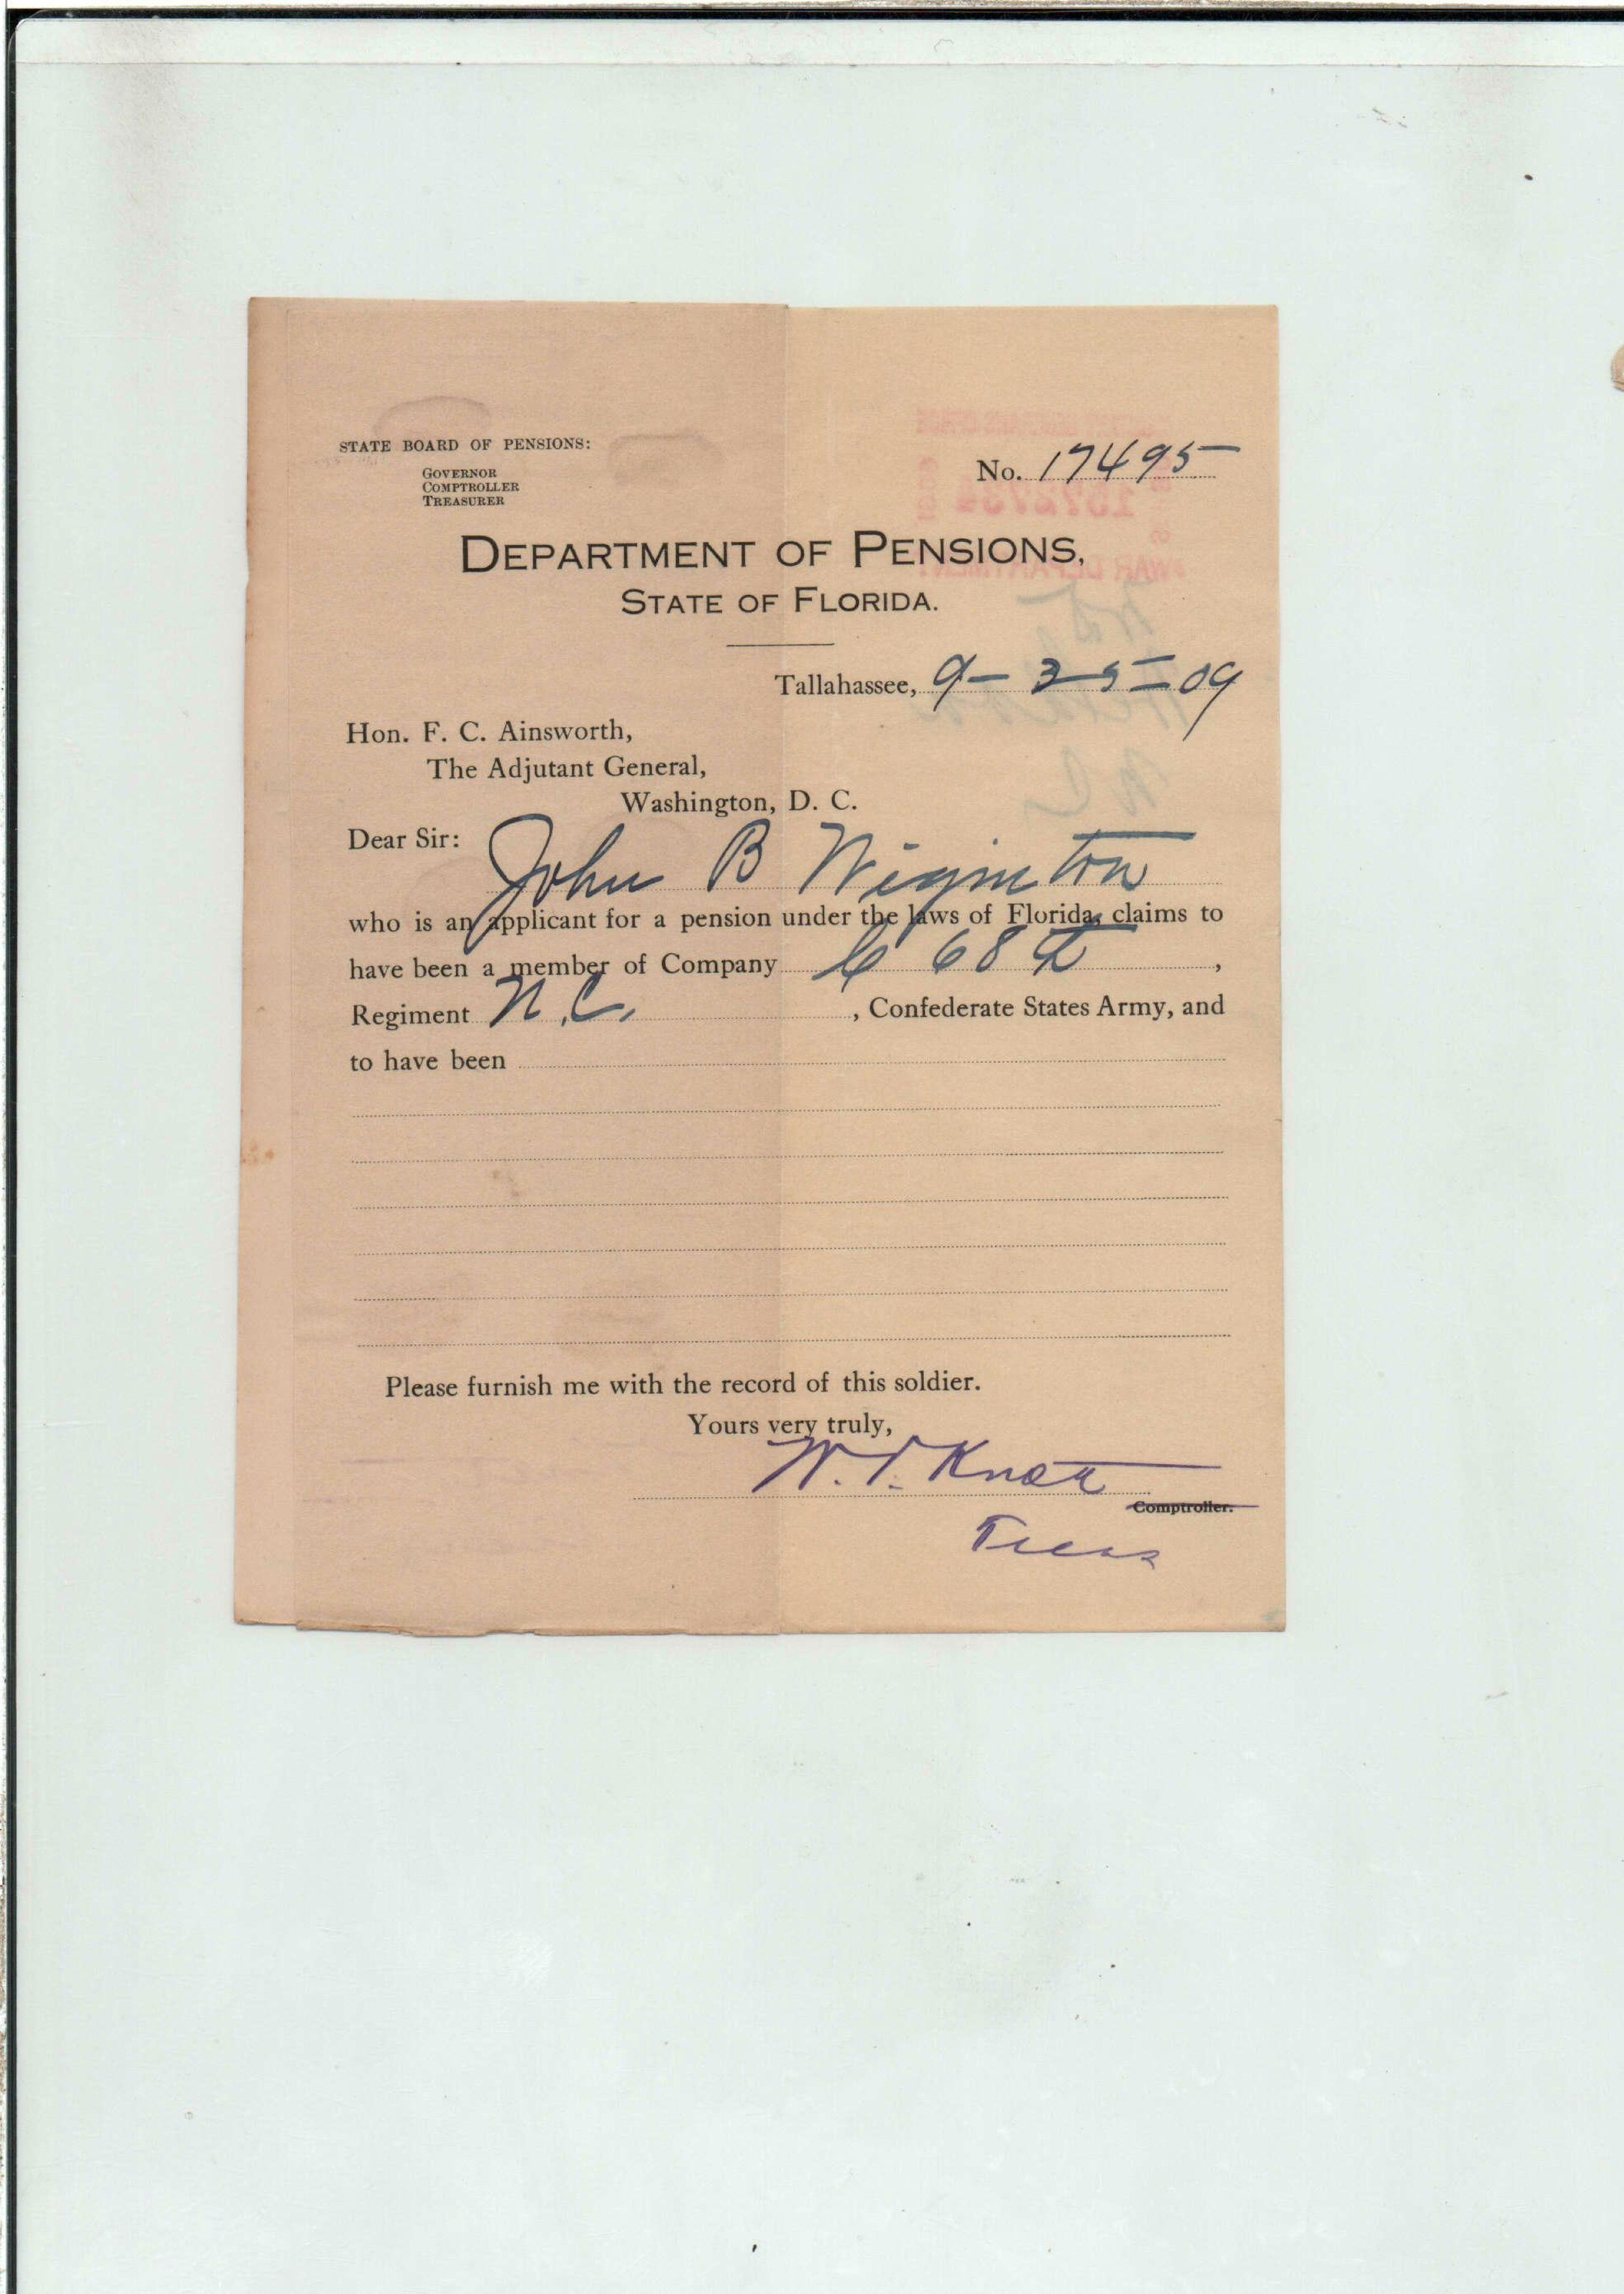 STATE BOARD OF PENSIONS:
GOVERNOR
COMPTROLLER
TREASURER
No. 17495
DEPARTMENT OF PENSIONS,
STATE OF FLORIDA.
Tallahassee, 9-25-09
Hon. F. C. Ainsworth,
The Adjutant General,
Washington, D. C.
Dear Sir:
John B Wiginton
who is an applicant for a pension under the laws of Florida, claims to
have been a member of Company C 68th,
Regiment N.C., Confederate States Army, and
to have been
Please furnish me with the record of this soldier.
Yours very truly,
W. V. Knott
Comptroller.
Treas